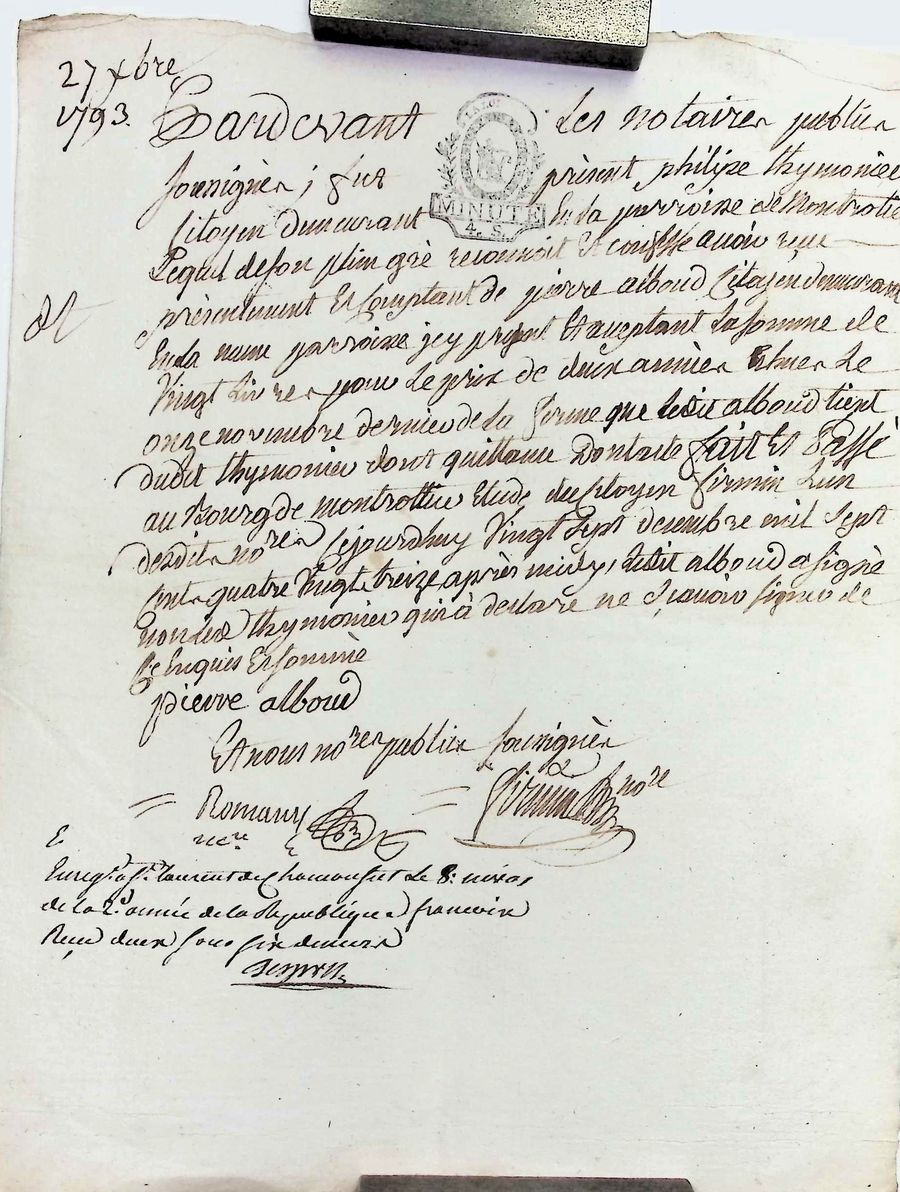 27 xbre
1793.
Pardevant Les notaires publics
LA LOI
MINUTE
4. S.
soussignés ; fut présent philipe thymonier
Citoyen demeurant En la parroisse de Montrottie
Lequel de son plein gré reconnoit Et confesse avoir reçu
présentement Et Comptant de pierre alboud Citoyen demeurant
En la meme parroisse icy present Et acceptant La somme de
Vingt Livres pour Le prix de deux années Echues Le
onze novembre dernier de La ferme que Ledit alboud tient
dudit thymonier dont quittance Dont acte fait Et Passé
au Bourg de montrottier Etude du Citoyen firmin L'un
desdits nores Cejourdhuy Vingt Sept desembre mil Sept
Cents quatre Vingt treize après midy, Ledit alboud a signé
non Led thymonier qui à déclaré ne Sçavoir signer de
Ce Enquis Et sommé
pierre alboud
Et nous nores publics soussignés
Romany firmin nore
nre.
E
Enreg.é a St. Laurent de Chamousset Le 8. nivos
de la 2e. année de la Republique francoise
Reçu deux sous six deniers